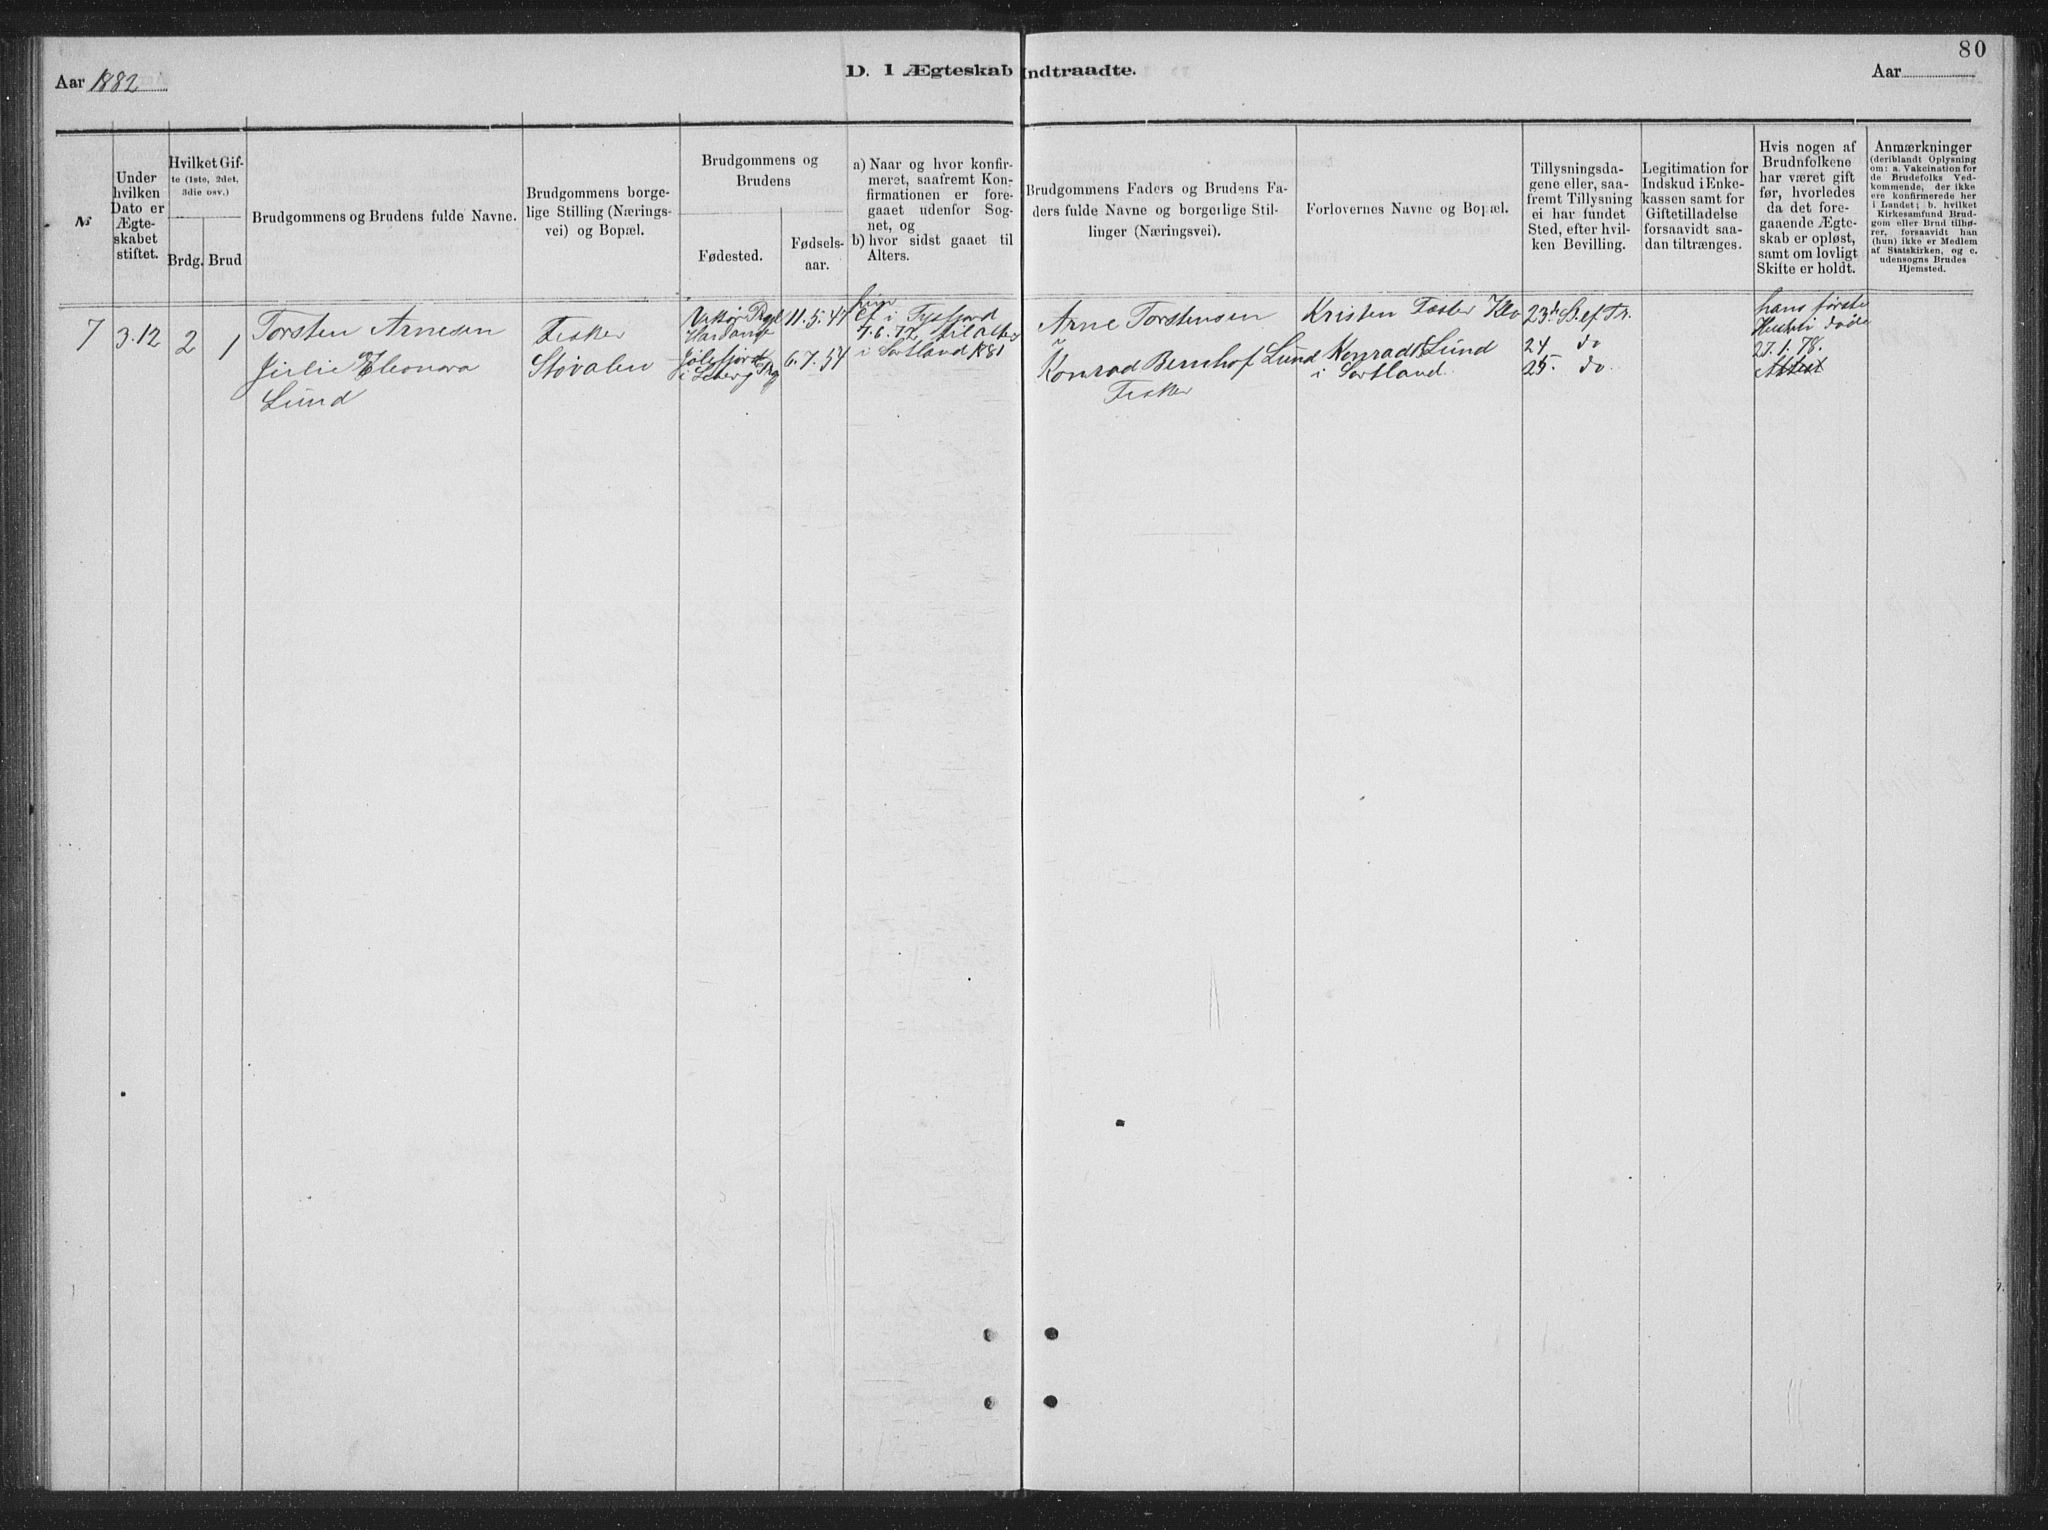 80
Aar 1882
D. I Ægteskab Indtraadte.
Aar
№
Under hvilken Dato er Ægteskabet stiftet.
Hvilket Gifte (1ste, 2det, 3die osv.)
Brdg. Brud
Brudgommens og Brudens fulde Navne.
Brudgommens borgelige Stilling (Næringsvei) og Bopæl.
Brudgommens og Brudens
Fødested.
Fødselsaar.
a) Naar og hvor konfirmeret, saafremt Konfirmationen er foregaaet udenfor Sognet, og
b) hvor sidst gaaet til Alters.
Brudgommens Faders og Brudens Faders fulde Navne og borgerlige Stillinger (Næringsvei).
Forlovernes Navne og Bopæl.
Tillysningsdagene eller, saafremt Tillysning ei har fundet Sted, efter hvilken Bevilling.
Legitimation for Indskud i Enkekassen samt for Giftetilladelse forsaavidt saadan tiltrænges.
Hvis nogen af Brudnfolkene har været gift før, hvorledes da det foregaaende Ægteskab er opløst, samt om lovligt Skifte er holdt.
Anmærkninger
(deriblandt Oplysning om: a. Vakcination for de Brudefolks Vedkommende, der ikke ere konfirmerede her i Landet; b. hvilket Kirkesamfund Brudgom eller Brud tilhører, forsaavidt han (hun) ikke er Medlem af Statskirken, og c. udensogns Brudes Hjemsted.
7
3.12
2
1
Torsten Arnesen
Julie Eleonora
Lund
Fisker
Stövalen
Hardang
11.5.47
6.7.54
hun
Cf i Tysfjord
7.6.72 til Alters
i Sortland 1881
Arne Torstensen
Konrad Bernhof Lund
Fisker
Kristen Klo
Konrad B Lund
i Sortland
23d S. ef Tr.
24 do
25 do
hans første
Hustru døde
27.1.78.
Attest